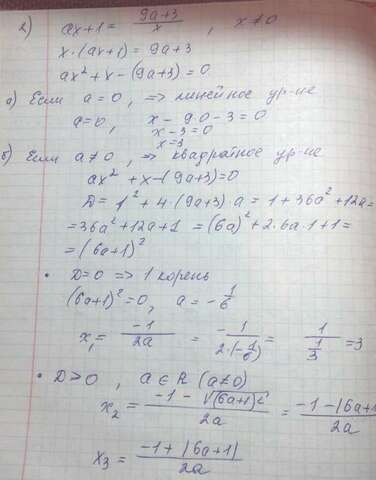 2) ax+1 = (9a+3)/x , x≠0
x·(ax+1) = 9a+3
ax²+x-(9a+3)=0
а) Если a=0, => линейное ур-ие
a=0, x-9·0-3=0
x-3=0
x=3
б) Если a≠0, => квадратное ур-ие
ax²+x-(9a+3)=0
D=1²+4·(9a+3)·a = 1+36a²+12a=
=36a²+12a+1 =(6a)²+2·6a·1+1=
=(6a+1)²
• D=0 => 1 корень
(6a+1)²=0, a=-1/6
x₁= -1/2a = -1/2·(-1/6) = 1/(1/3) =3
• D>0, a∈R (a≠0)
x₂= (-1-√(6a+1)²)/2a = (-1-|6a+1
)/2a
x₃= (-1+|6a+1|)/2a